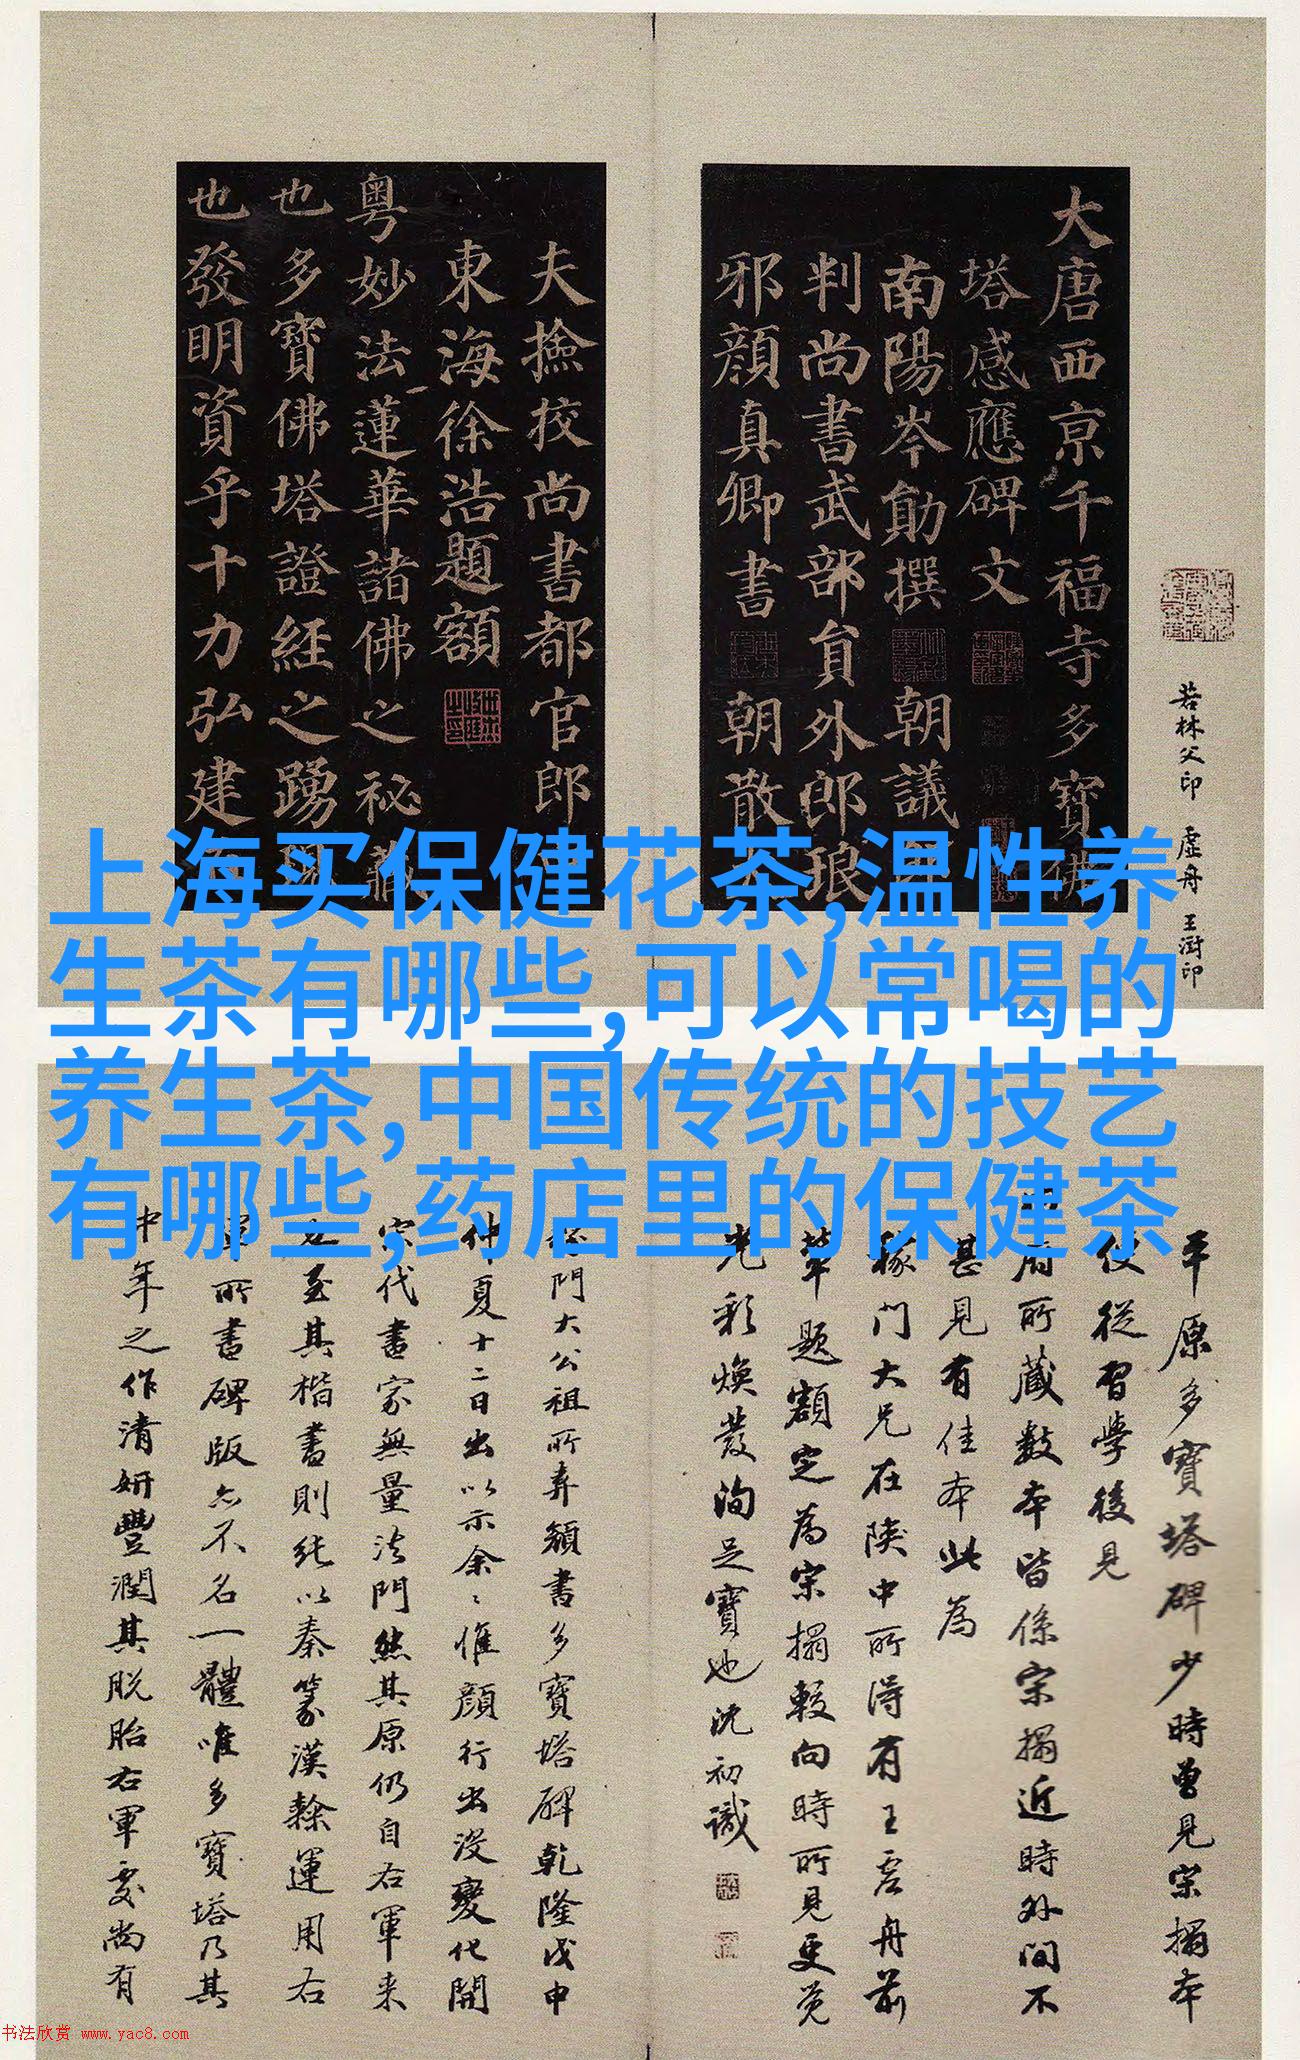 大唐西京千福寺多寶佛
塔感應碑文
南陽岑勛撰 朝議
判尚書武部員外郎琅
邪顏真卿書 朝散
夫撿挍尚書都官郎
東海徐浩題額
粤妙法蓮華諸佛之祕藏
也多寶佛塔證經之踴
也發明資乎十力弘建
若林父印 虛舟 王澍印
上海买保健花茶,温性养
生茶有哪些,可以常喝的
养生茶,中国传统的技艺
有哪些,药店里的保健茶
平原多寶塔碑少時曾見宗搨本
便從習學後見
府所藏數本皆係宗搨近時外間不
甚見有佳本此為
稼門大兄在陝中所得有王虛舟前
輩題額定為宗搨較向時所見更覺
光彩煥發洵足寶也沈初識
稼門大公祖所弆顏書多寶塔碑乾隆戊申
仲夏十二日出以示余〻惟顏行出沒變化開
宗代書家無量法門然其原仍自右軍来
也至其楷書則純以秦篆漢隸運用右
軍所書碑版亦不名一體唯多寶塔乃其
中年之作清妍豐潤其脫胎右軍處尚有
书法欣赏 www.yac8.com